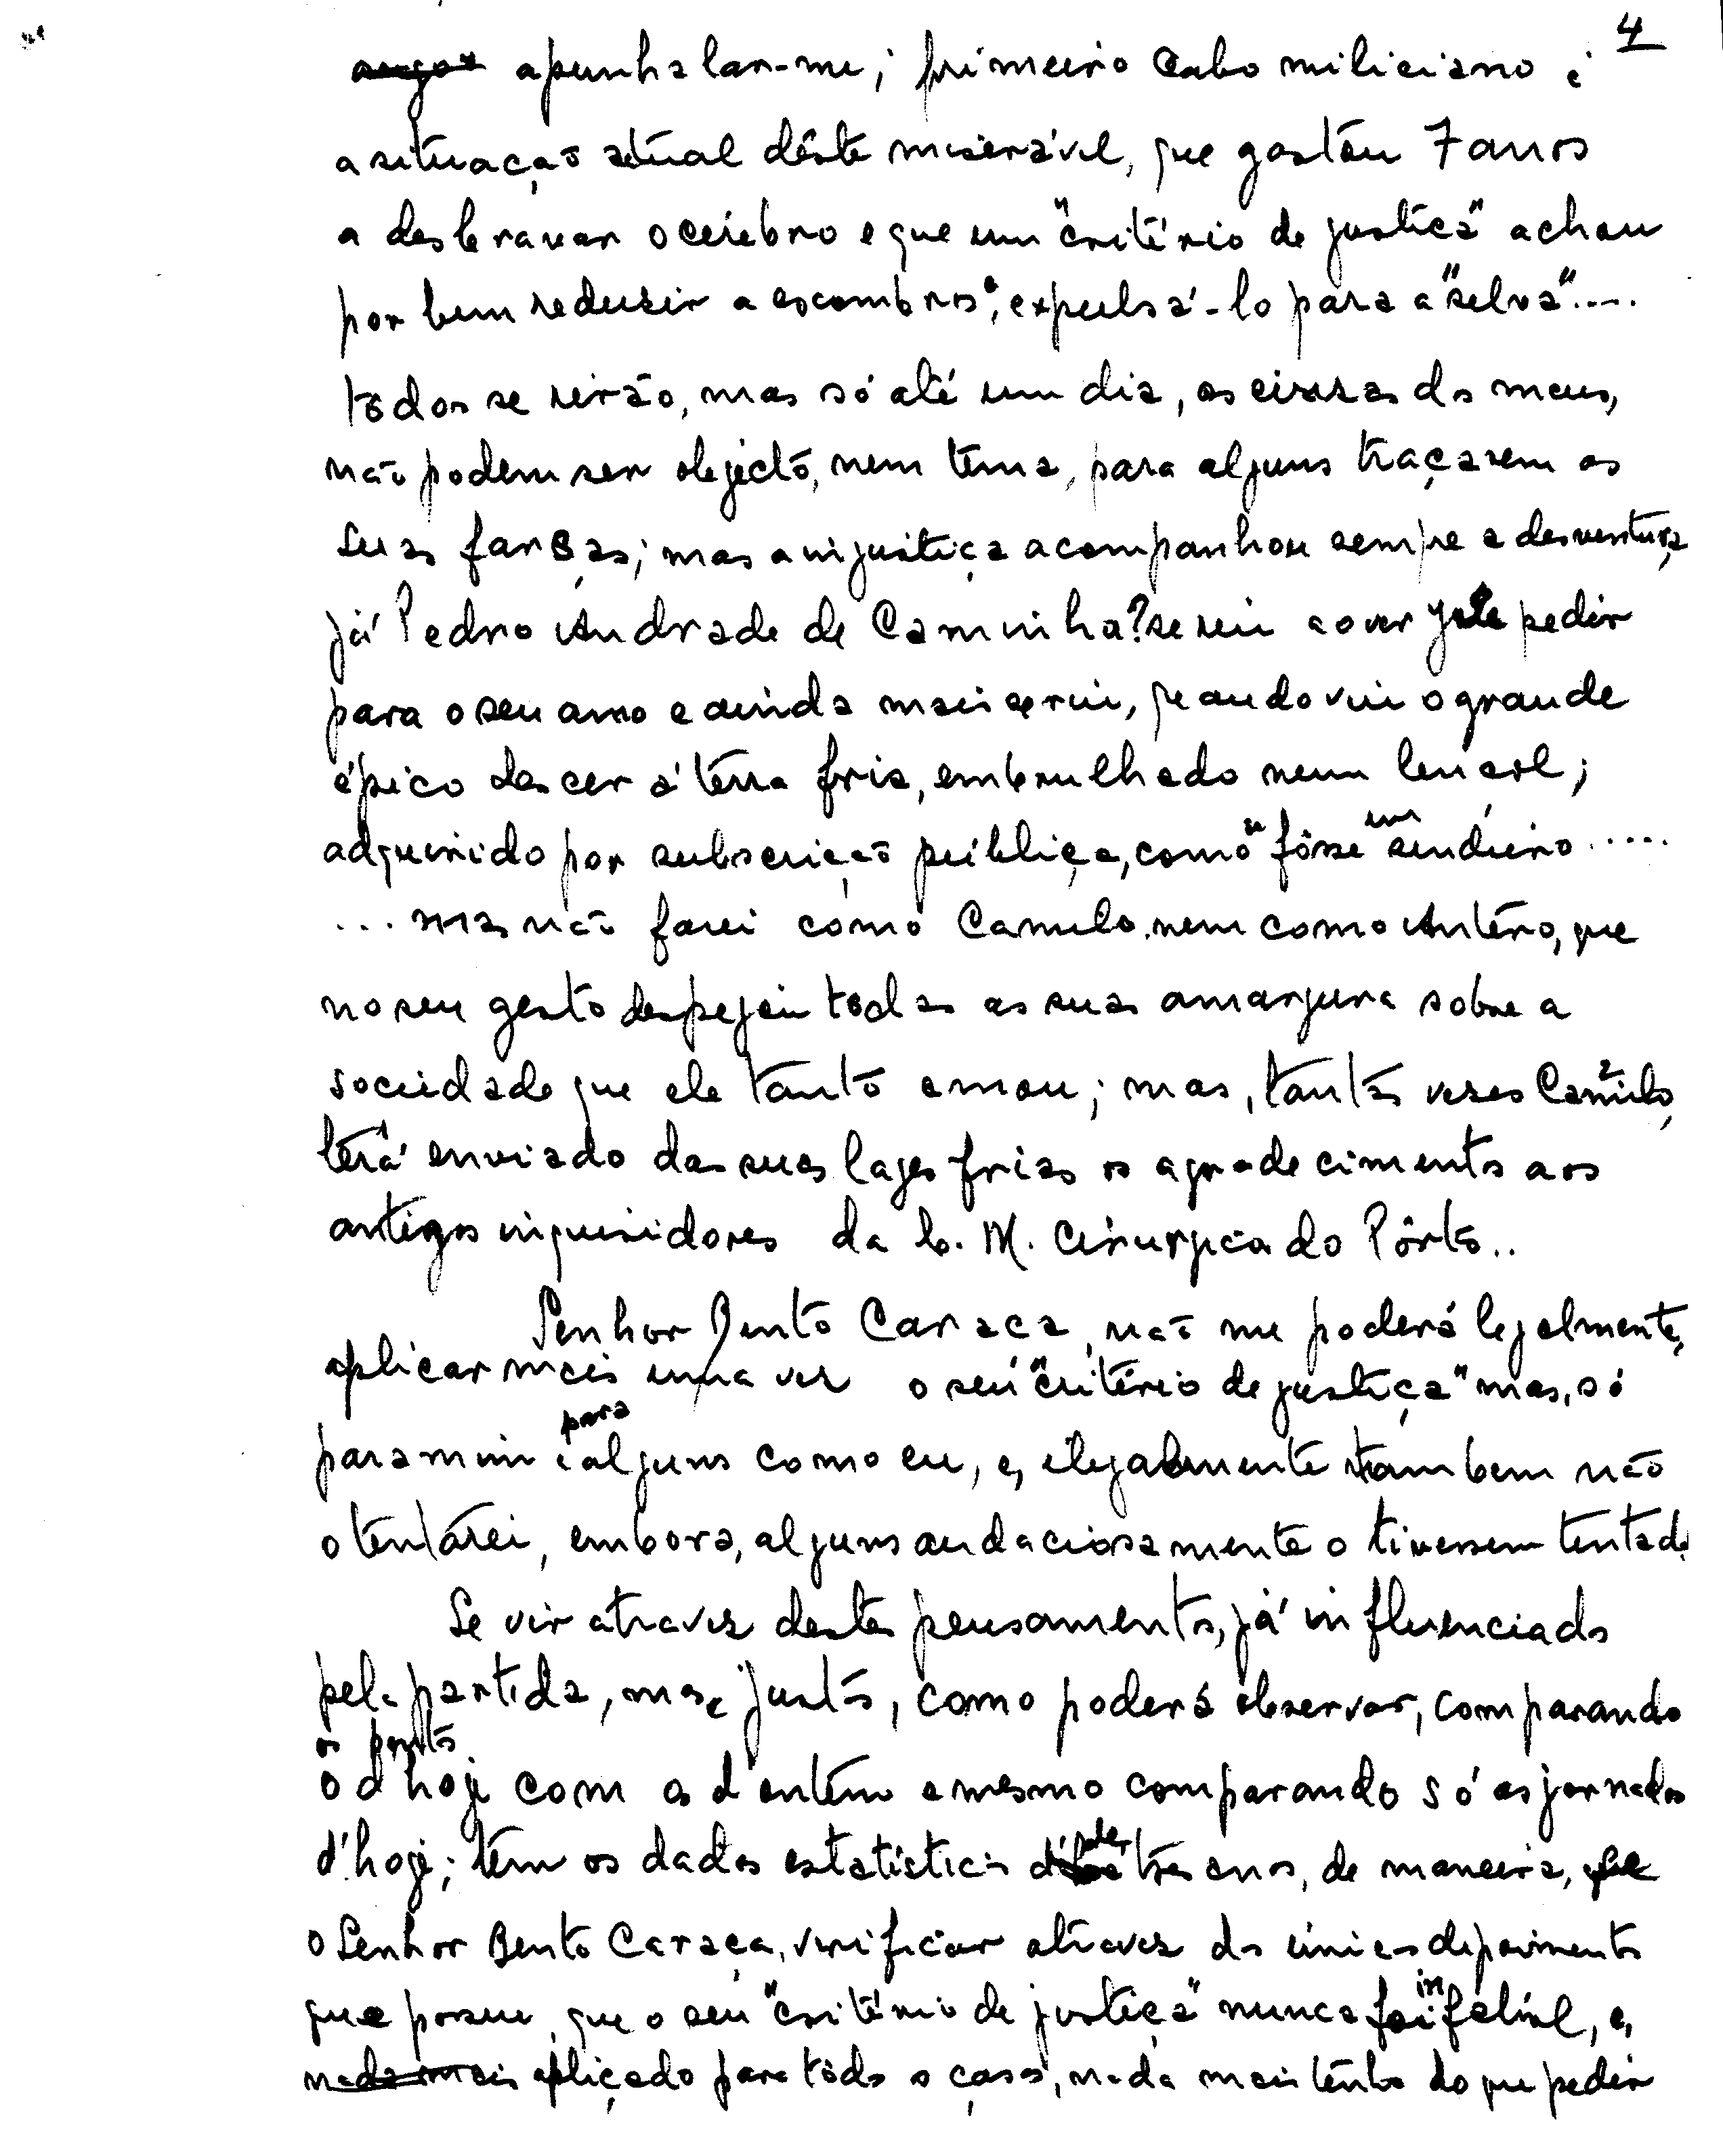 4
apunhalar-me; primeiro Cabo miliciano é
a situação actual dêste miserável, que gastou 7 anos
a desbravar o cérebro e que um "critério de justiça" achou
por bem reduzir a escombros e, expulsá-lo para a "selva"....
todos se rirão, mas só até um dia, as cinzas dos meus,
não podem ser objecto, nem tema, para alguns traçarem as
suas farsas; mas a injustiça acompanhou sempre a desventura,
já Pedro Andrade de Caminha? se riu ao ver pedir
para o seu amo e ainda mais se riu, quando viu o grande
épico descer á terra fria, embrulhado num lençol;
adquirido por subscrição pública, como se fôsse um sendeiro .....
... mas não farei como Camilo, nem como Antero, que
no seu gesto despejou todas as suas amargura sobre a
sociedade que ele tanto amou; mas, tantas vezes Camilo,
terá enviado das suas lages frias os agradecimentos aos
antigos inquisidores da E. M. Cirurgica do Pôrto..
Senhor Bento Caraça, não me poderá legalmente,
aplicar mais uma vez o seu "critério de justiça" mas, só
para mim e para alguns como eu, e, ilegalmente tambem não
o tentarei, embora, alguns audaciosamente o tivessem tentado
Se vir atravez destes pensamentos, já influenciados
pela partida, mas justos, como poderá observar, comparando
os pontos
o d'hoje com os d'ontem e mesmo comparando só as jornadas
d'hoje; tem os dados estatísticos de três anos, de maneira, que
o Senhor Bento Caraça, verificar atravez dos únicos depoimentos
que possue, que o seu "critério de justiça" nunca foi infalível, e,
nada mais aplicado para todos os casos, nada mais tenho do que pedir